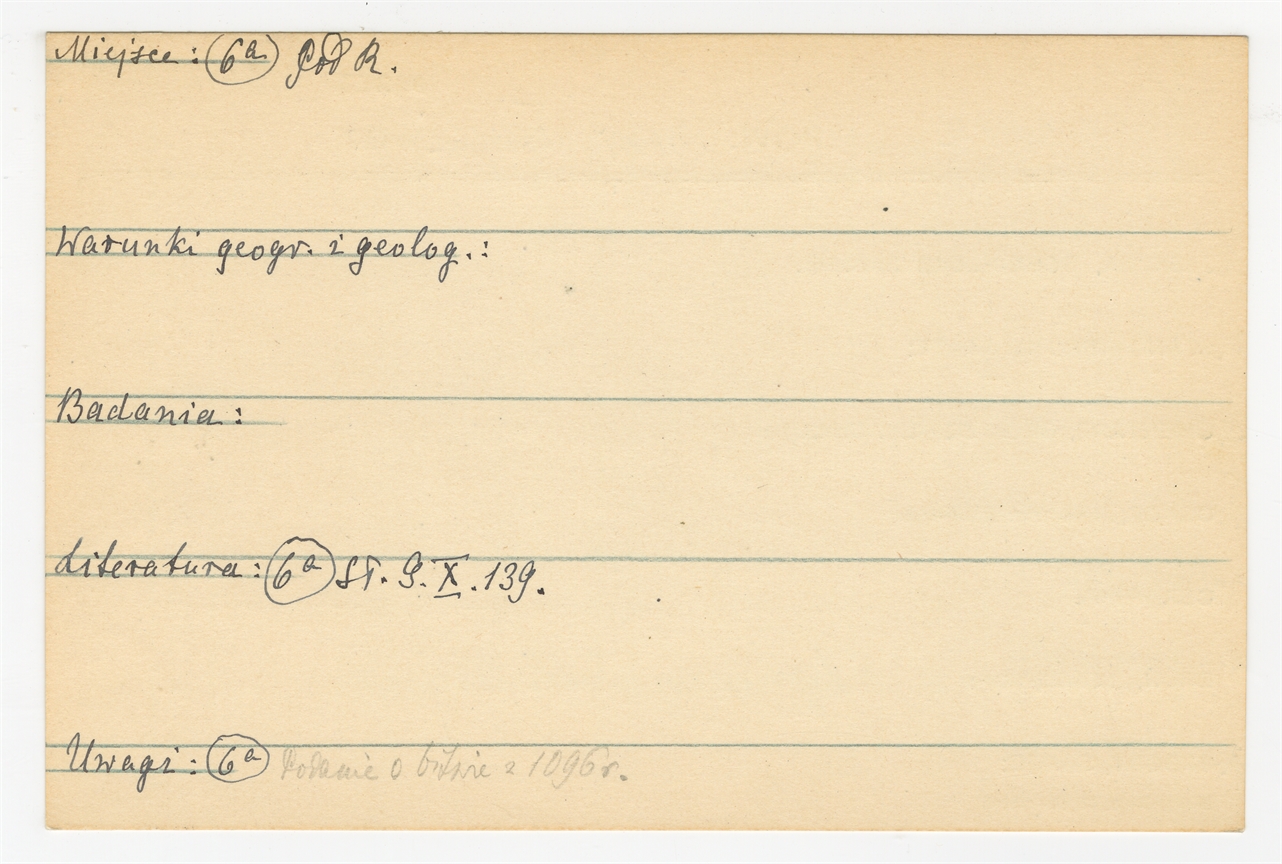 Miejsce: 6a Pod R.
Warunki geogr. i geolog.:
Badania:
Literatura: 6a Sł. G. X. 139.
Uwagi: 6a Podanie o bitwie z 1096 r.